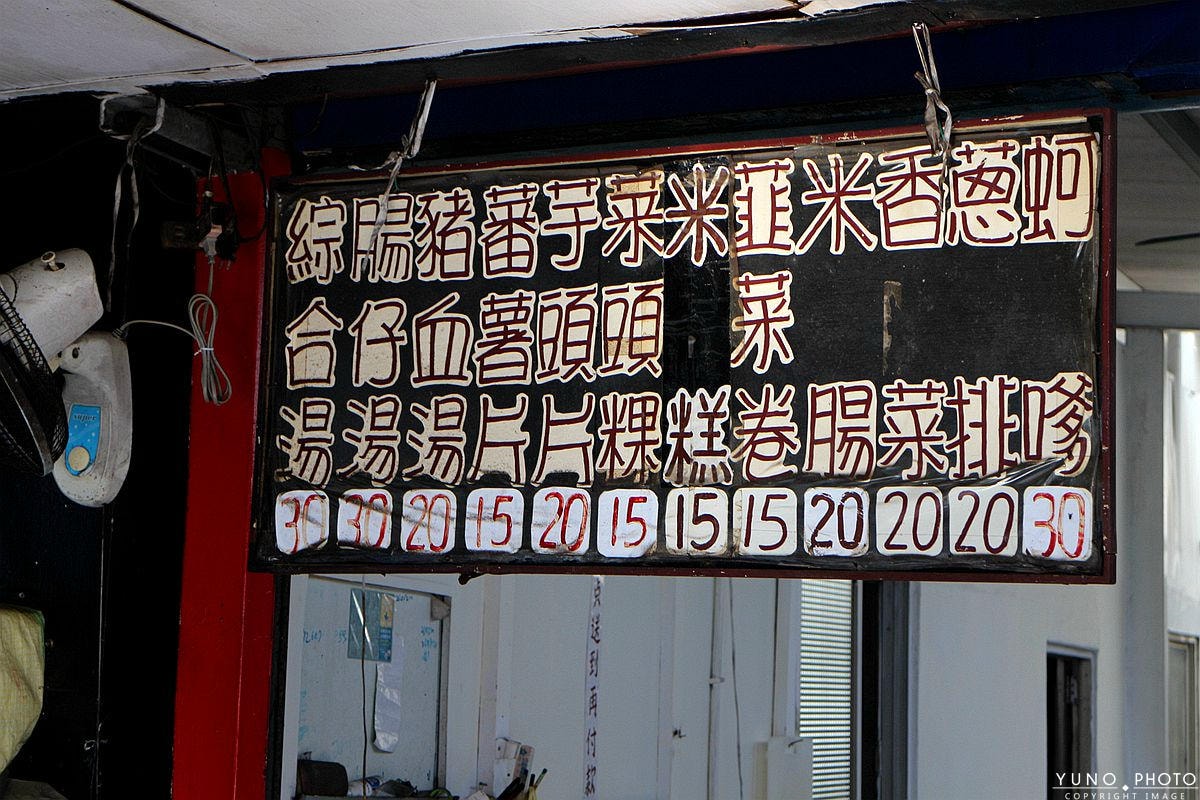 綜合湯 30
腸仔湯 30
豬血湯 20
蕃薯片 15
芋頭片 20
菜頭粿 15
米糕 15
韮菜卷 15
米腸 20
香菜 20
蔥排 20
蚵嗲 30
YUNO PHOTO
COPYRIGHT IMAGE